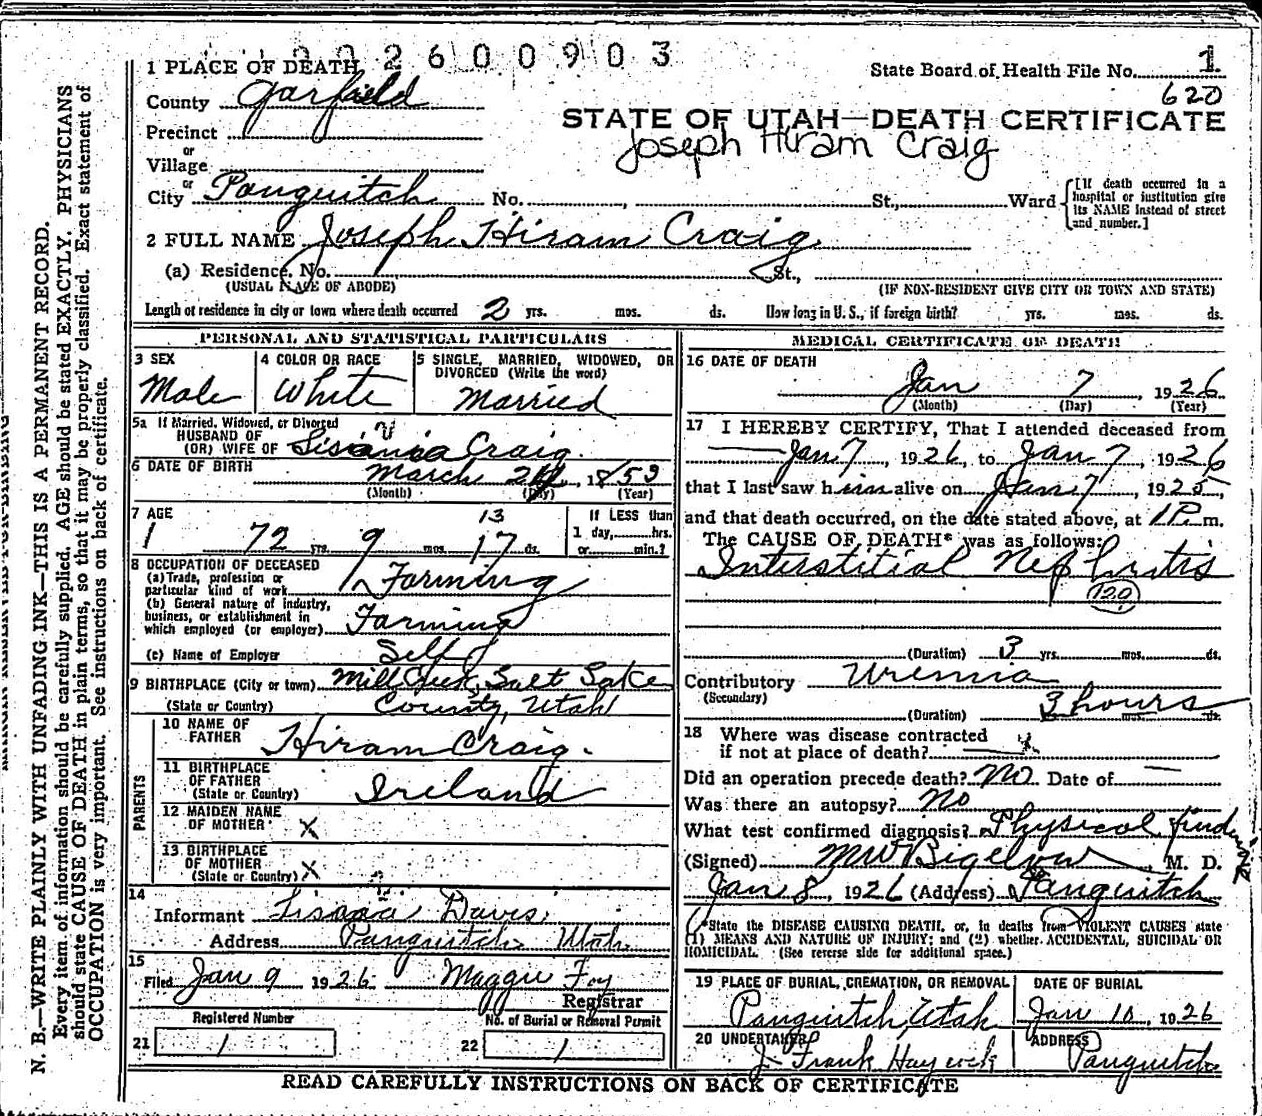 2600903
1 PLACE OF DEATH
State Board of Health File No. 1
620
County Garfield
STATE OF UTAH—DEATH CERTIFICATE
Joseph Hiram Craig
Precinct
or
Village
or
City Panguitch No. , St., Ward
[If death occurred in a hospital or institution give its NAME instead of street and number.]
2 FULL NAME Joseph Hiram Craig
(a) Residence, No. St.,
(USUAL PLACE OF ABODE) (IF NON-RESIDENT GIVE CITY OR TOWN AND STATE)
Length of residence in city or town where death occurred 2 yrs. mos. ds. How long in U. S., if foreign birth? yrs. mos. ds.
PERSONAL AND STATISTICAL PARTICULARS
3 SEX
Male
4 COLOR OR RACE
White
5 SINGLE, MARRIED, WIDOWED, OR DIVORCED (Write the word)
Married
5a If Married, Widowed, or Divorced
HUSBAND OF
(OR) WIFE OF Craig
6 DATE OF BIRTH March 24, 1853
(Month) (Day) (Year)
7 AGE 13 If LESS than
1 72 yrs. 9 mos. 17 ds. 1 day, hrs.
or min.?
8 OCCUPATION OF DECEASED
(a) Trade, profession or
particular kind of work Farming
(b) General nature of industry,
business, or establishment in
which employed (or employer) Farming
(c) Name of Employer Self
9 BIRTHPLACE (City or town) Mill Creek, Salt Lake
(State or Country) County, Utah
PARENTS
10 NAME OF
FATHER Hiram Craig.
11 BIRTHPLACE
OF FATHER
(State or Country) Ireland
12 MAIDEN NAME
OF MOTHER X
13 BIRTHPLACE
OF MOTHER
(State or Country) X
14
Informant Davis
Address Panguitch Utah
15
Filed Jan 9 1926 Maggie Foy
Registrar
Registered Number No. of Burial or Removal Permit
21 1 22 1
MEDICAL CERTIFICATE OF DEATH
16 DATE OF DEATH
Jan 7, 1926
(Month) (Day) (Year)
17 I HEREBY CERTIFY, That I attended deceased from
Jan 7, 1926, to Jan 7, 1926
that I last saw him alive on Jan 7, 1925,
and that death occurred, on the date stated above, at 1 P. m.
The CAUSE OF DEATH* was as follows:
Interstitial Nephritis
120
(Duration) 3 yrs. mos. ds.
Contributory Uremia
(Secondary)
(Duration) 3 hours mos. ds.
18 Where was disease contracted
if not at place of death?
Did an operation precede death? No. Date of —
Was there an autopsy? No
What test confirmed diagnosis? Physical findings
(Signed) M W Bigelow, M. D.
Jan 8, 1926 (Address) Panguitch
*State the DISEASE CAUSING DEATH, or, in deaths from VIOLENT CAUSES state
(1) MEANS AND NATURE OF INJURY; and (2) whether ACCIDENTAL, SUICIDAL OR
HOMICIDAL. (See reverse side for additional space.)
19 PLACE OF BURIAL, CREMATION, OR REMOVAL
Panguitch, Utah
DATE OF BURIAL
Jan 10, 1926
20 UNDERTAKER
J. Frank Haycock
ADDRESS
Panguitch
READ CAREFULLY INSTRUCTIONS ON BACK OF CERTIFICATE
N. B.—WRITE PLAINLY WITH UNFADING INK—THIS IS A PERMANENT RECORD.
Every item of information should be carefully supplied. AGE should be stated EXACTLY. PHYSICIANS
should state CAUSE OF DEATH in plain terms, so that it may be properly classified. Exact statement of
OCCUPATION is very important. See instructions on back of certificate.